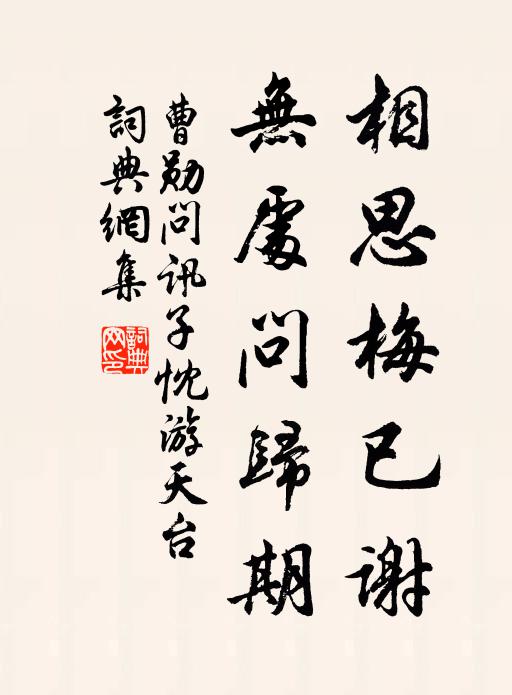 相思梅已謝
無處問歸期
曹勋問訊子忱游天台
詞典網集
詞典网印